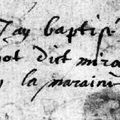 J'ay baptisé
ot dict mira
la marain